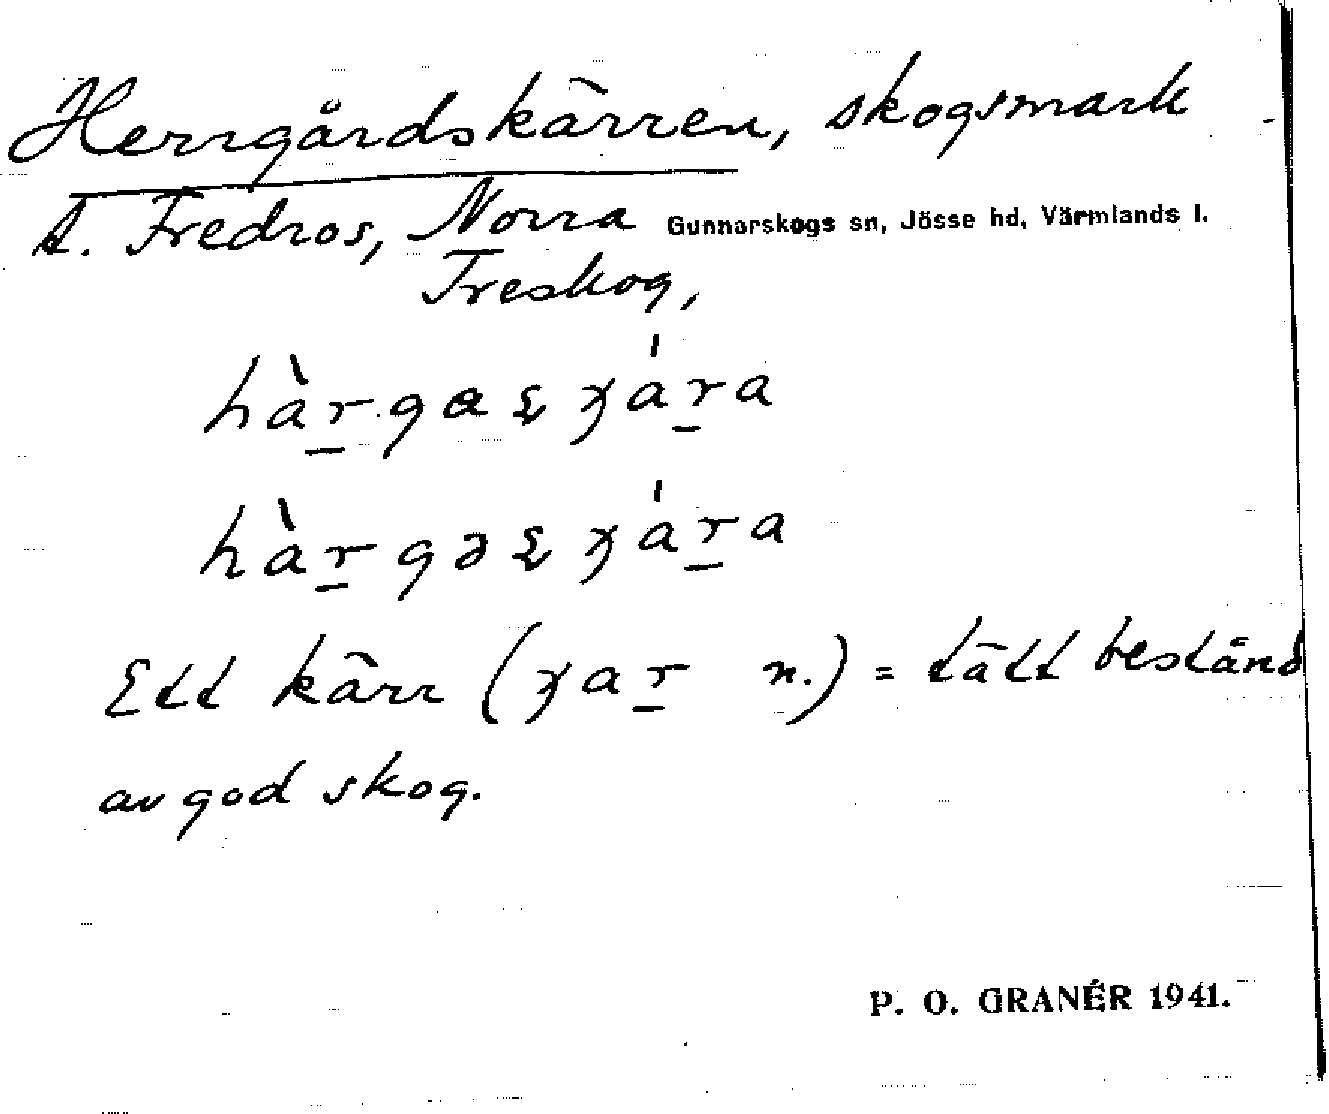 Herrgårdskärren, skogsmark
t. Fredros, Norra Gunnarskogs sn, Jösse hd, Värmlands l.
Treskog,
Ett kärr (xar̲ n.) = tätt bestånd
av god skog.
P. O. GRANÉR 1941.